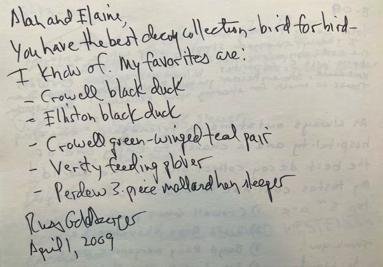 Alan and Elaine,
You have the best decoy collection - bird for bird -
I know of. My favorites are:
- Crowell black duck
- Elliston black duck
- Crowell green-winged teal pair
- Verity feeding plover
- Perdew 3-piece mallard hen sleeper
Russ Goldberger
April 1, 2009